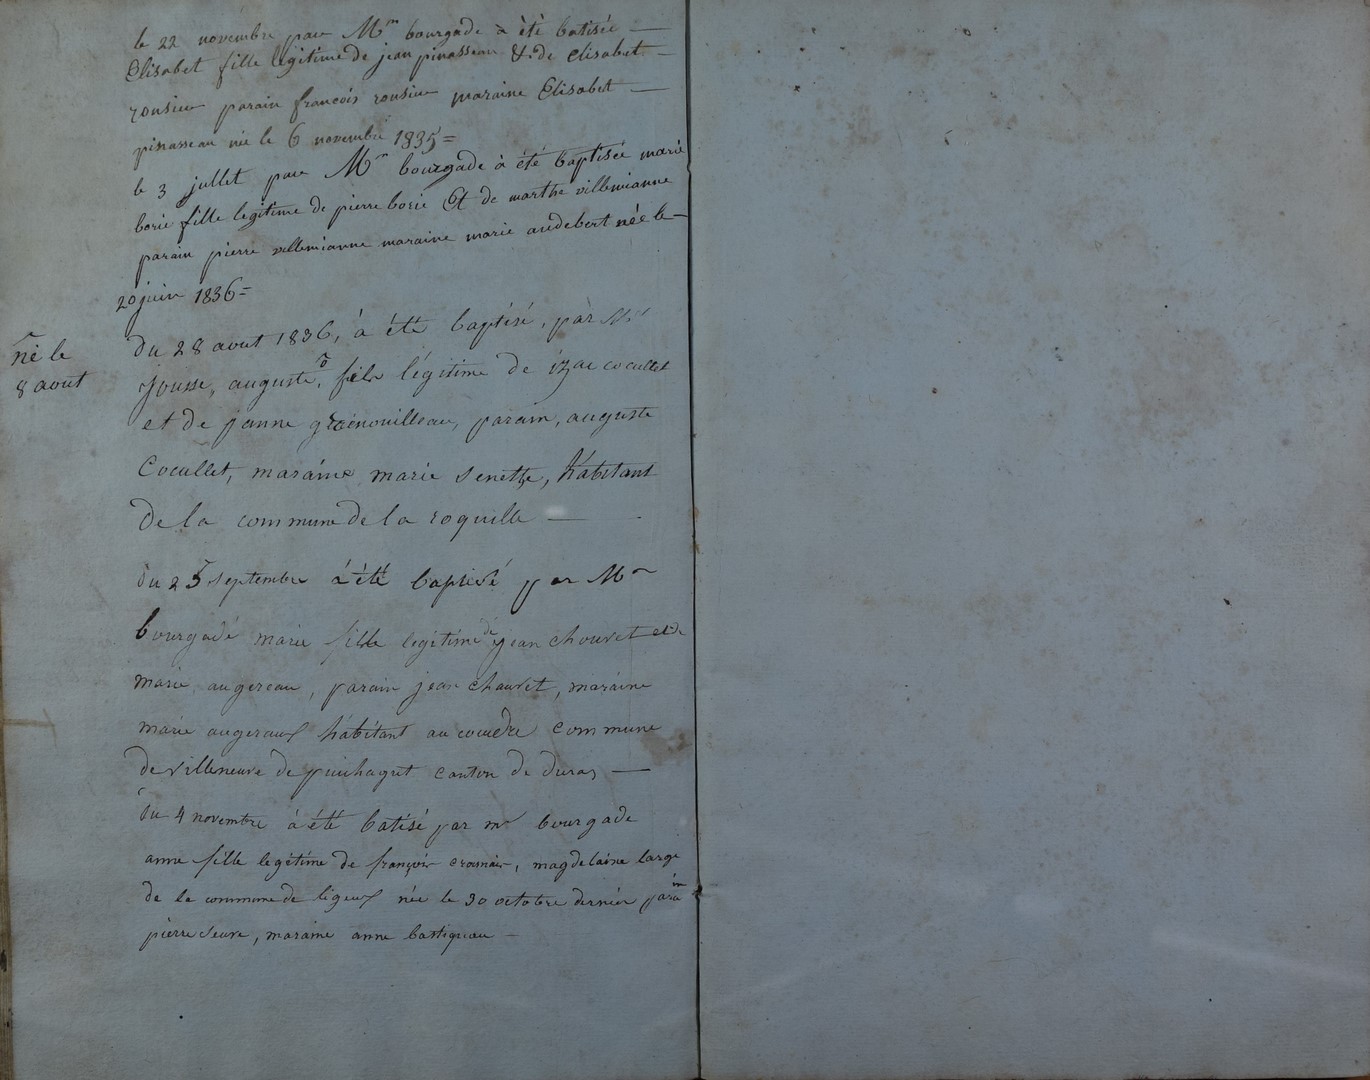 le 22 novembre par Mr bourgade à été batisée —
Elisabet fille legitime de jean pinasseau & de elisabet —
rousieu parain françois rousieu maraine Elisabet —
pinasseau née le 6 novembre 1835 =
le 3 jullet par Mr bourgade à été baptisée marie
borie fille legitime de pierre borie Et de marthe villemianne
parain pierre villemianne maraine marie audebert née le —
20 juin 1836 =
né le
8 aout
Du 28 aout 1836, á été baptisé, par Mr
Jousse, auguste, fils légitime de izac cocullet
et de janne grénouilleau, parain, auguste
Cocullet, maraine marie senette, Habitant
de la commune de la roquille —
Du 25 septembre á été baptisé par Mr
bourgadé marie fille legitime de jean chouvet et de
marie augereau, parain jean chauvet, maraine
marie augeraux habitant au coudre commune
de villeneuve de puichagut canton de duras —
Du 4 novembre á été batisé par mr bourgade
anne fille legétime de françois cramair, magdelaine large
de la commune de ligeux née le 30 octobre dernier parain
pierre seuve, maraine anne bastiguau —